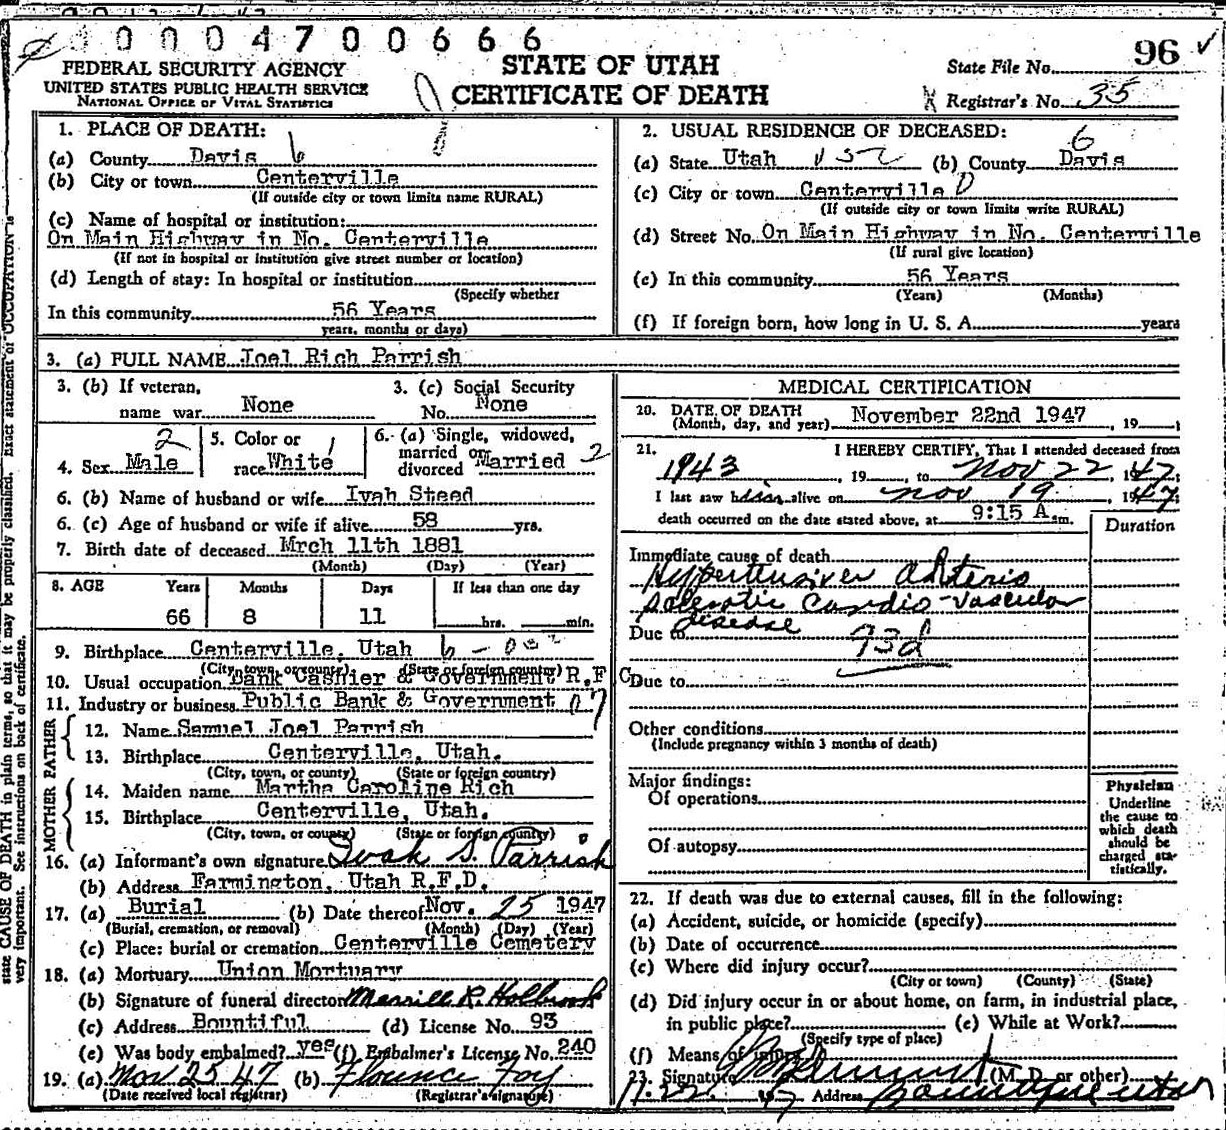 0 0 0 0 4 7 0 0 6 6 6
96
FEDERAL SECURITY AGENCY
UNITED STATES PUBLIC HEALTH SERVICE
NATIONAL OFFICE OF VITAL STATISTICS
STATE OF UTAH
CERTIFICATE OF DEATH
State File No.
Registrar's No. 35
1. PLACE OF DEATH:
(a) County Davis 6
(b) City or town Centerville
(If outside city or town limits name RURAL)
(c) Name of hospital or institution:
On Main Highway in No. Centerville
(If not in hospital or institution give street number or location)
(d) Length of stay: In hospital or institution
(Specify whether
In this community 56 Years
years, months or days)
2. USUAL RESIDENCE OF DECEASED:
6
(a) State Utah (b) County Davis
(c) City or town Centerville
(If outside city or town limits write RURAL)
(d) Street No. On Main Highway in No. Centerville
(If rural give location)
(e) In this community 56 Years
(Years) (Months)
(f) If foreign born, how long in U. S. A. years
3. (a) FULL NAME Joel Rich Parrish
3. (b) If veteran, name war None
3. (c) Social Security No. None
4. Sex Male 2
5. Color or race White 1
6. (a) Single, widowed, married or divorced Married 2
6. (b) Name of husband or wife Ivah Steed
6. (c) Age of husband or wife if alive 58 yrs.
7. Birth date of deceased Mrch 11th 1881
(Month) (Day) (Year)
8. AGE Years Months Days If less than one day
66 8 11 hrs. min.
9. Birthplace Centerville, Utah
(City, town, or county) (State or foreign country)
10. Usual occupation Bank Cashier & Government R.F C
11. Industry or business Public Bank & Government
FATHER
12. Name Samuel Joel Parrish
13. Birthplace Centerville, Utah.
(City, town, or county) (State or foreign country)
MOTHER
14. Maiden name Martha Caroline Rich
15. Birthplace Centerville, Utah.
(City, town, or county) (State or foreign country)
16. (a) Informant's own signature Ivah S. Parrish
(b) Address Farmington, Utah R.F.D.
17. (a) Burial (b) Date thereof Nov. 25 1947
(Burial, cremation, or removal) (Month) (Day) (Year)
(c) Place: burial or cremation Centerville Cemetery
18. (a) Mortuary Union Mortuary
(b) Signature of funeral director Merrill R. Holbrook
(c) Address Bountiful (d) License No. 93
(e) Was body embalmed? yes (f) Embalmer's License No. 240
19. (a) Nov 25 47 (b) Florence Foy
(Date received local registrar) (Registrar's signature)
MEDICAL CERTIFICATION
20. DATE OF DEATH
(Month, day, and year) November 22nd 1947, 19
21. I HEREBY CERTIFY, That I attended deceased from
1943, 19, to Nov 22, 1947,
I last saw him alive on Nov 19 1947
death occurred on the date stated above, at 9:15 A.m.
Duration
Immediate cause of death
Hypertensive Arterio
Sclerotic Cardio-Vascular
disease
Due to 93d
Due to
Other conditions
(Include pregnancy within 3 months of death)
Major findings:
Of operations
Of autopsy
Physician
Underline
the cause to
which death
should be
charged sta-
tistically.
22. If death was due to external causes, fill in the following:
(a) Accident, suicide, or homicide (specify)
(b) Date of occurrence
(c) Where did injury occur?
(City or town) (County) (State)
(d) Did injury occur in or about home, on farm, in industrial place,
in public place? (e) While at Work?
(Specify type of place)
(f) Means of injury
23. Signature (M. D. or other)
11-22 47 Address Bountiful Utah
state CAUSE OF DEATH in plain terms, so that it may be properly classified. Exact statement of OCCUPATION is
very important. See instructions on back of certificate.